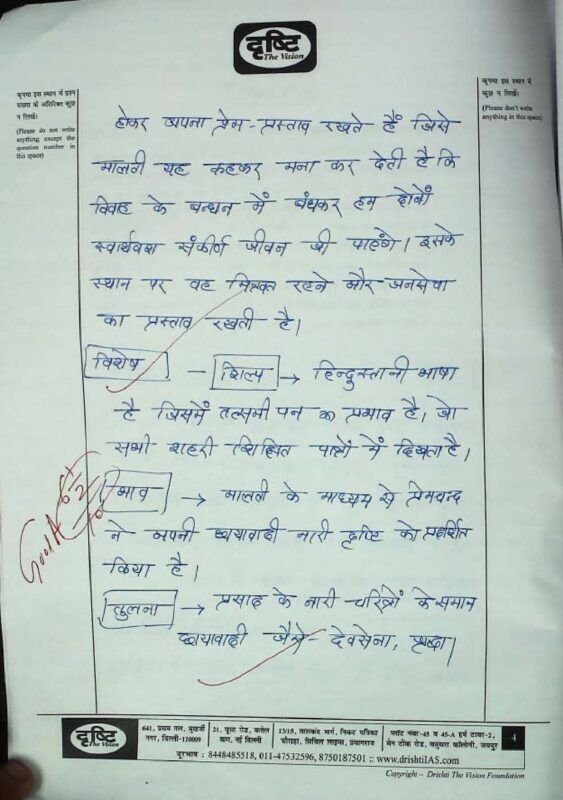 दृष्टि
The Vision
कृपया इस स्थान में प्रश्न
संख्या के अतिरिक्त कुछ
न लिखें।
(Please do not write
anything except the
question number in
this space)
कृपया इस स्थान में
कुछ न लिखें।
(Please don't write
anything in this space)
होकर अपना प्रेम-प्रस्ताव रखते हैं जिसे
मालती यह कहकर मना कर देती है कि
विवाह के बन्धन में बंधकर हम दोनों
स्वार्थवश संकीर्ण जीवन जी पाएंगे। इसके
स्थान पर वह मित्रवत रहने और जनसेवा
का प्रस्ताव रखती है।
विशेष - शिल्प → हिन्दुस्तानी भाषा
है जिसमें तत्समी पन का प्रभाव है। जो
सभी शहरी शिक्षित पात्रों में दिखता है।
भाव → मालती के माध्यम से प्रेमचन्द
ने अपनी छायावादी नारी दृष्टि को प्रदर्शित
किया है।
Good
तुलना → प्रसाद के नारी चरित्रों के समान
छायावादी जैसे- देवसेना, श्रद्धा।
दृष्टि
The Vision
641, प्रथम तल, मुखर्जी
नगर, दिल्ली-110009
21, पूसा रोड, करोल
बाग, नई दिल्ली
13/15, ताशकंद मार्ग, निकट पत्रिका
चौराहा, सिविल लाइन्स, प्रयागराज
प्लॉट नम्बर-45 व 45-A हर्ष टावर-2,
मेन टोंक रोड, वसुंधरा कॉलोनी, जयपुर
4
दूरभाष : 8448485518, 011-47532596, 8750187501 :: www.drishtiIAS.com
Copyright – Drishti The Vision Foundation